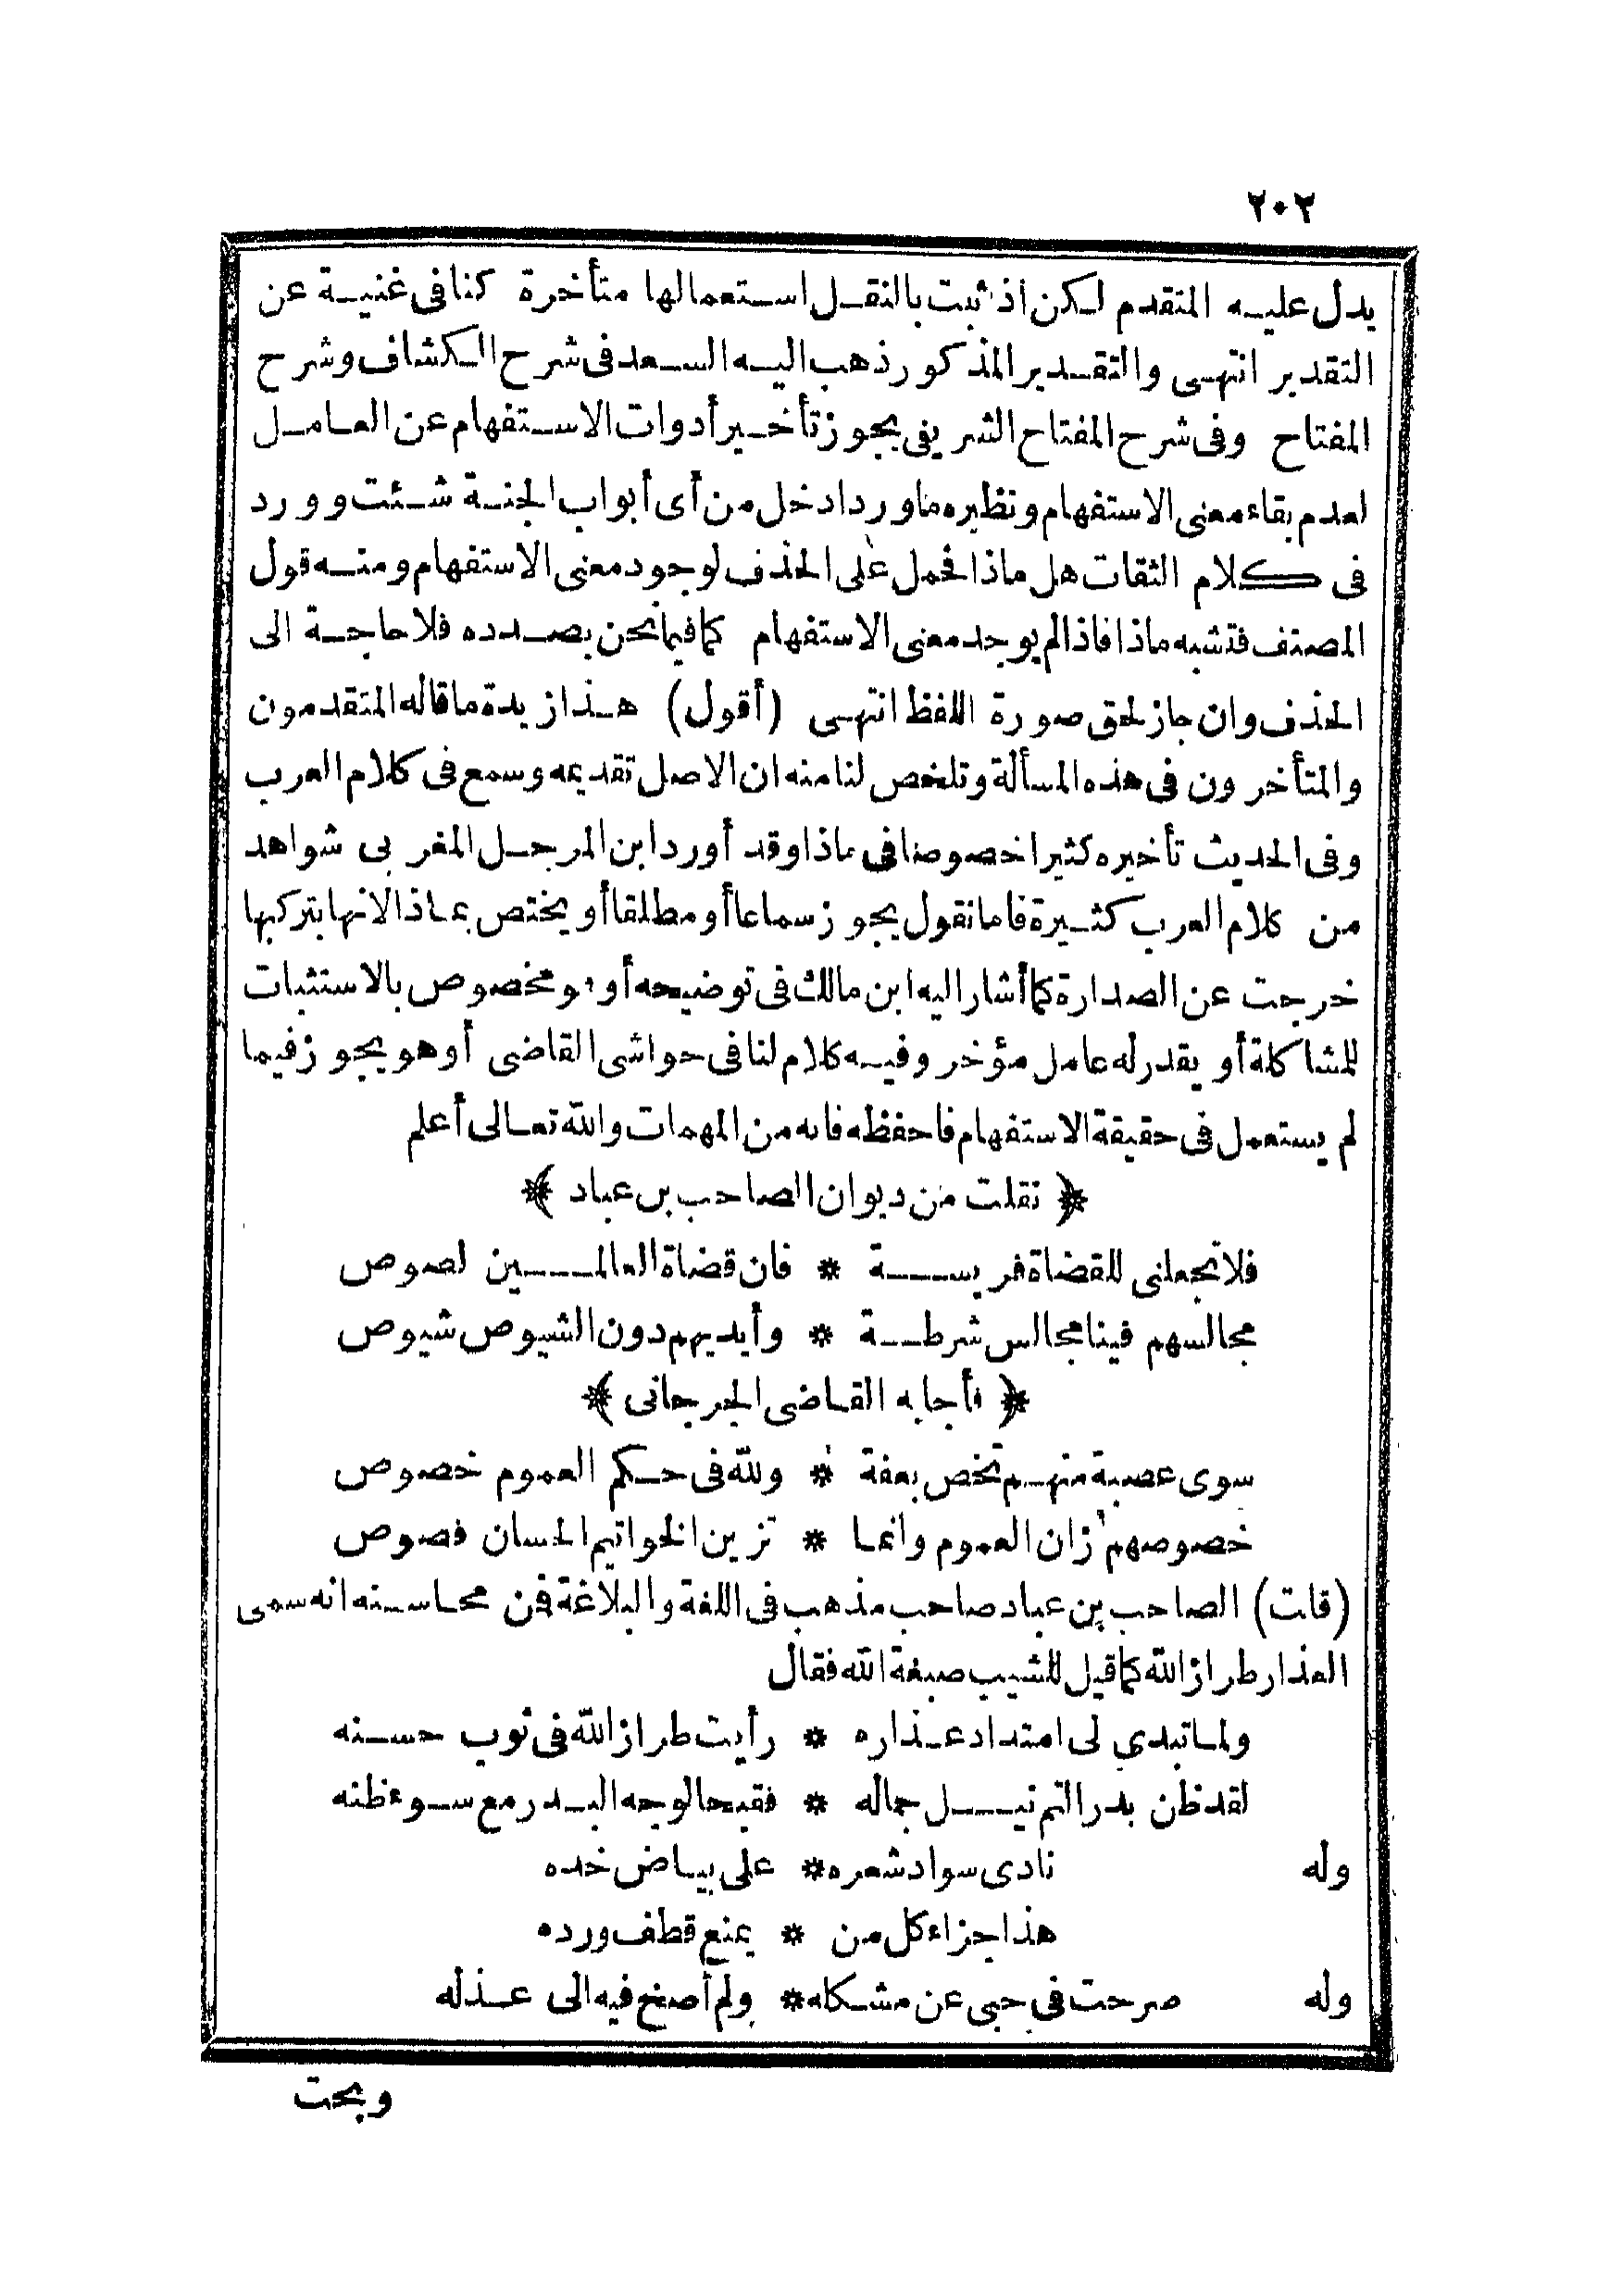 ٢٠٢
يدل عليه المتقدم لكن اذ ثبت بالنقل استعمالها متأخرة كنا في غنية عن
التقدير انتهى والتقدير المذكور ذهب اليه السعد في شرح الكشاف وشرح
المفتاح وفى شرح المفتاح الشريفى يجوز تأخير أدوات الاستفهام عن العامل
لعدم بقاء معنى الاستفهام ونظيره ما ورد ادخل من أى أبواب الجنة شئت وورد
فى كلام الثقات هل ماذا فحمل على الحذف لوجود معنى الاستفهام ومنه قول
المصنف فتشبه ماذا فاذا لم يوجد معنى الاستفهام كما فيما نحن بصدده فلا حاجة الى
الحذف وان جاز لحق صورة اللفظ انتهى (أقول) هذا زبدة ما قاله المتقدمون
والمتأخرون فى هذه المسألة وتلخص لنا منه ان الاصل تقديمه وسمع فى كلام العرب
وفى الحديث تأخيره كثيرا خصوصا فى ماذا وقد أورد ابن المرحل المغربى شواهد
من كلام العرب كثيرة فاما نقول يجوز سماعا أو مطلقا أو يختص بماذا لانها بتركبها
خرجت عن الصدارة كما أشار اليه ابن مالك فى توضيحه أو هو مخصوص بالاستثبات
للمشاكلة أو يقدر له عامل مؤخر وفيه كلام لنا فى حواشى القاضى أو هو يجوز فيما
لم يستعمل فى حقيقة الاستفهام فاحفظه فانه من المهمات والله تعالى أعلم
﴿ نقلت من ديوان الصاحب بن عباد ﴾
فلا تجعلنى للقضاة فريسة * فان قضاة العالمين لصوص
مجالسهم فينا مجالس شرطة * وأيديهم دون الشيوص شيوص
﴿ فأجابه القاضى الجرجانى ﴾
سوى عصبة منهم تخص بعفة * ولله فى حكم العموم خصوص
خصوصهم زان العموم وانما * تزين الخواتيم الحسان فصوص
(قلت) الصاحب بن عباد صاحب مذهب فى اللغة والبلاغة فمن محاسنه انه سمى
العذار طراز الله كما قيل للشيب صبغة الله فقال
ولما تبدى لى امتداد عذاره * رأيت طراز الله فى ثوب حسنه
لقد ظن بدر التم نيل جماله * فقبحا لوجه البدر مع سوء ظنه
وله نادى سواد شعره * على بياض خده
هذا جزاء كل من * يمنع قطف ورده
وله صرحت فى حبى عن مشكله * ولم أصغ فيه الى عذله
وبحت